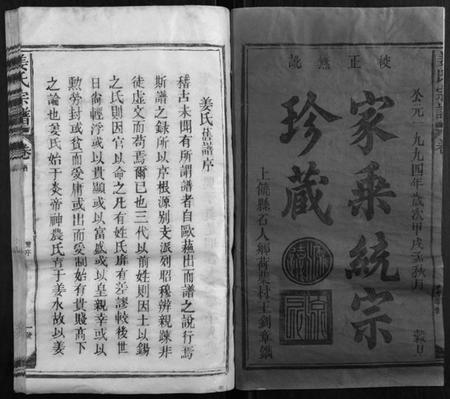 校正無訛
公元一九九四年歲次甲戌孟秋月 穀旦
家乘統宗
珍藏
姜氏宗譜
卷
姜氏族譜序
稽古未聞有所謂譜者自歐蘇出而譜之說行焉
斯譜之錄所以序根源別支派列昭穆辨親疎非
徒虛文而苟焉爾已也三代以前姓則因土以錫
之氏則因官以命之凡有姓氏所有差謬較後世
日尚輕浮或以貴顯或以富盛或以皇親幸或以
勳勞封或貧而愛庸或出而愛制始有貴賤高下
之論也姜氏始于炎帝神農氏育于姜水故以姜
姜氏宗譜
卷